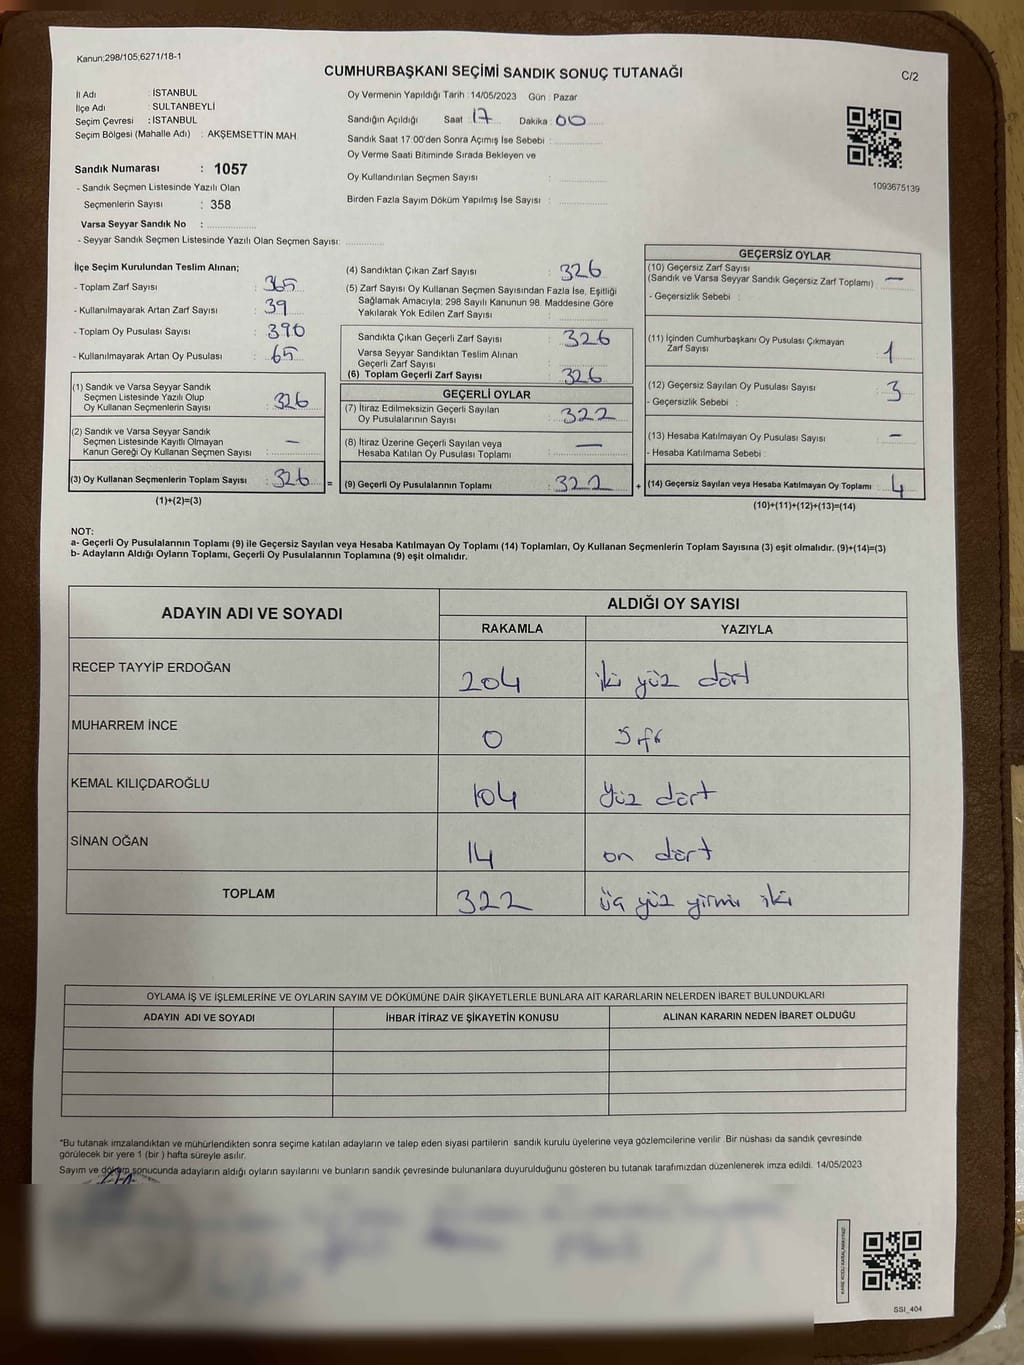 Kanun:298/105,6271/18-1
CUMHURBAŞKANI SEÇİMİ SANDIK SONUÇ TUTANAĞI
C/2
İl Adı : İSTANBUL
İlçe Adı : SULTANBEYLİ
Seçim Çevresi : İSTANBUL
Seçim Bölgesi (Mahalle Adı) : AKŞEMSETTİN MAH.
Oy Vermenin Yapıldığı Tarih : 14/05/2023 Gün : Pazar
Sandığın Açıldığı Saat 17 Dakika : 00
Sandık Saat 17.00'den Sonra Açılmış İse Sebebi :
Oy Verme Saati Bitiminde Sırada Bekleyen ve
Oy Kullandırılan Seçmen Sayısı :
Birden Fazla Sayım Döküm Yapılmış İse Sayısı :
1093675139
Sandık Numarası : 1057
- Sandık Seçmen Listesinde Yazılı Olan
Seçmenlerin Sayısı : 358
Varsa Seyyar Sandık No :
- Seyyar Sandık Seçmen Listesinde Yazılı Olan Seçmen Sayısı:
İlçe Seçim Kurulundan Teslim Alınan;
- Toplam Zarf Sayısı : 365
- Kullanılmayarak Artan Zarf Sayısı : 39
- Toplam Oy Pusulası Sayısı : 390
- Kullanılmayarak Artan Oy Pusulası : 65
(1) Sandık ve Varsa Seyyar Sandık
Seçmen Listesinde Yazılı Olup
Oy Kullanan Seçmenlerin Sayısı : 326
(2) Sandık ve Varsa Seyyar Sandık
Seçmen Listesinde Kayıtlı Olmayan
Kanun Gereği Oy Kullanan Seçmen Sayısı : —
(3) Oy Kullanan Seçmenlerin Toplam Sayısı : 326 =
(1)+(2)=(3)
(4) Sandıktan Çıkan Zarf Sayısı : 326
(5) Zarf Sayısı Oy Kullanan Seçmen Sayısından Fazla İse, Eşitliği
Sağlamak Amacıyla; 298 Sayılı Kanunun 98. Maddesine Göre
Yakılarak Yok Edilen Zarf Sayısı :
Sandıkta Çıkan Geçerli Zarf Sayısı : 326
Varsa Seyyar Sandıktan Teslim Alınan
Geçerli Zarf Sayısı :
(6) Toplam Geçerli Zarf Sayısı : 326
GEÇERLİ OYLAR
(7) İtiraz Edilmeksizin Geçerli Sayılan
Oy Pusulalarının Sayısı : 322
(8) İtiraz Üzerine Geçerli Sayılan veya
Hesaba Katılan Oy Pusulası Toplamı : —
(9) Geçerli Oy Pusulalarının Toplamı : 322 +
GEÇERSİZ OYLAR
(10) Geçersiz Zarf Sayısı
(Sandık ve Varsa Seyyar Sandık Geçersiz Zarf Toplamı) : —
- Geçersizlik Sebebi :
(11) İçinden Cumhurbaşkanı Oy Pusulası Çıkmayan
Zarf Sayısı : 1
(12) Geçersiz Sayılan Oy Pusulası Sayısı : 3
- Geçersizlik Sebebi :
(13) Hesaba Katılmayan Oy Pusulası Sayısı : —
- Hesaba Katılmama Sebebi :
(14) Geçersiz Sayılan veya Hesaba Katılmayan Oy Toplamı : 4
(10)+(11)+(12)+(13)=(14)
NOT:
a- Geçerli Oy Pusulalarının Toplamı (9) ile Geçersiz Sayılan veya Hesaba Katılmayan Oy Toplamı (14) Toplamları, Oy Kullanan Seçmenlerin Toplam Sayısına (3) eşit olmalıdır. (9)+(14)=(3)
b- Adayların Aldığı Oyların Toplamı, Geçerli Oy Pusulalarının Toplamına (9) eşit olmalıdır.
ADAYIN ADI VE SOYADI
ALDIĞI OY SAYISI
RAKAMLA YAZIYLA
RECEP TAYYİP ERDOĞAN 204 iki yüz dört
MUHARREM İNCE 0 sıfır
KEMAL KILIÇDAROĞLU 104 yüz dört
SİNAN OĞAN 14 on dört
TOPLAM 322 üç yüz yirmi iki
OYLAMA İŞ VE İŞLEMLERİNE VE OYLARIN SAYIM VE DÖKÜMÜNE DAİR ŞİKAYETLERLE BUNLARA AİT KARARLARIN NELERDEN İBARET BULUNDUKLARI
ADAYIN ADI VE SOYADI İHBAR İTİRAZ VE ŞİKAYETİN KONUSU ALINAN KARARIN NEDEN İBARET OLDUĞU
*Bu tutanak imzalandıktan ve mühürlendikten sonra seçime katılan adayların ve talep eden siyasi partilerin sandık kurulu üyelerine veya gözlemcilerine verilir. Bir nüshası da sandık çevresinde
görülecek bir yere 1 (bir ) hafta süreyle asılır.
Sayım ve döküm sonucunda adayların aldığı oyların sayılarını ve bunların sandık çevresinde bulunanlara duyurulduğunu gösteren bu tutanak tarafımızdan düzenlenerek imza edildi. 14/05/2023
SSI_404